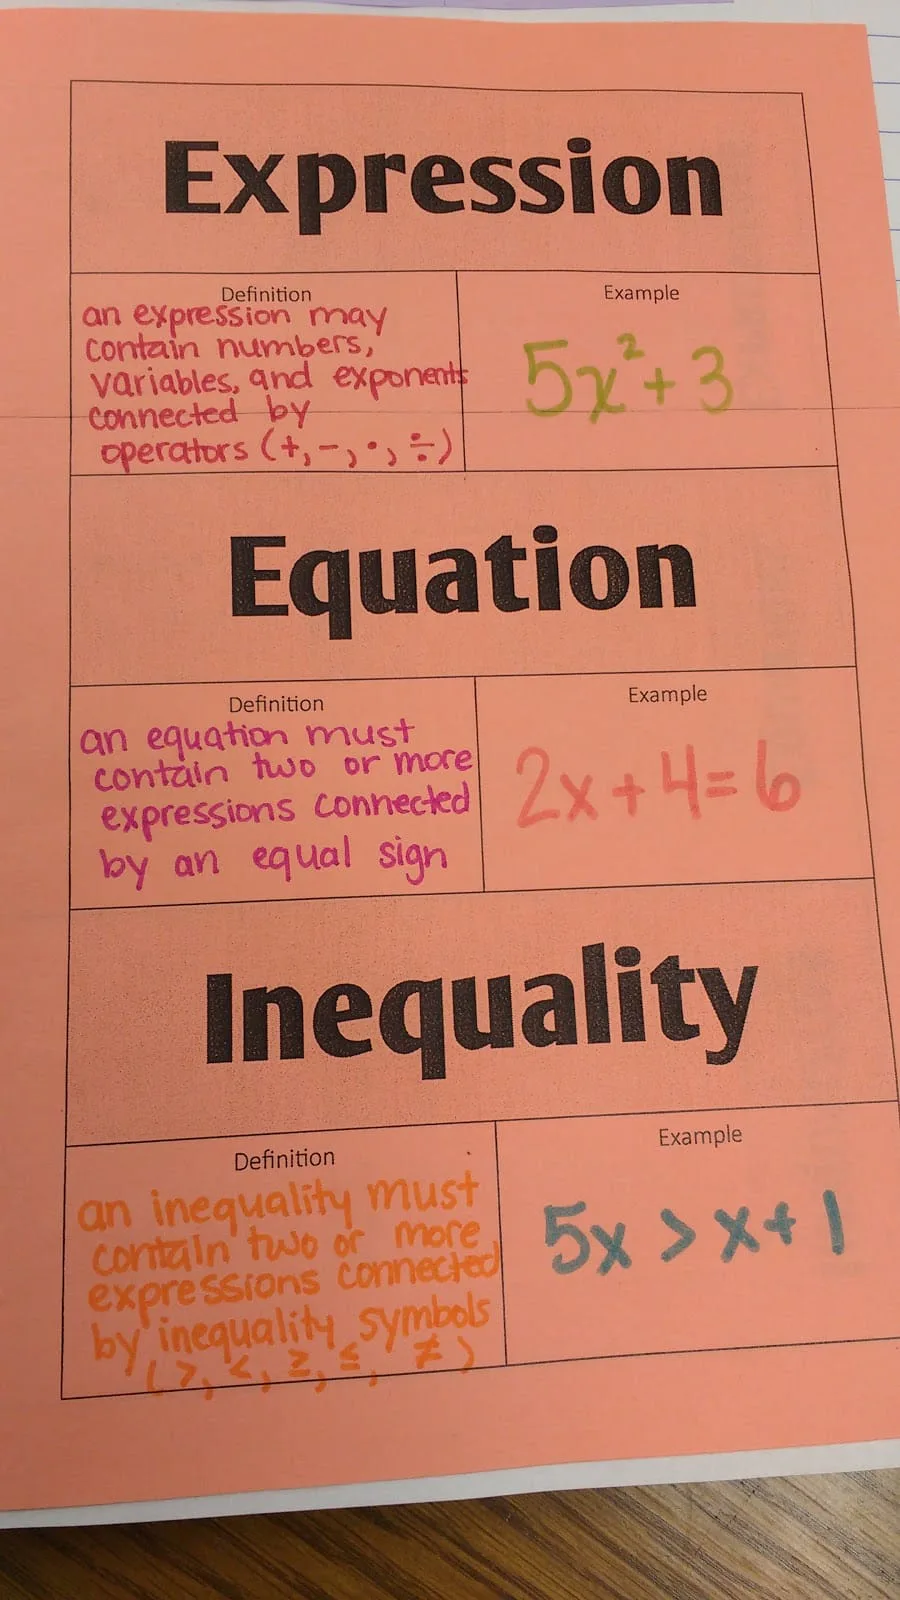 Expression
Definition
an expression may
contain numbers,
variables, and exponents
connected by
operators (+, -, •, ÷)
Example
5x²+3
Equation
Definition
an equation must
contain two or more
expressions connected
by an equal sign
Example
2x+4=6
Inequality
Definition
an inequality must
contain two or more
expressions connected
by inequality symbols
(>, <, ≥, ≤, ≠)
Example
5x > x+1